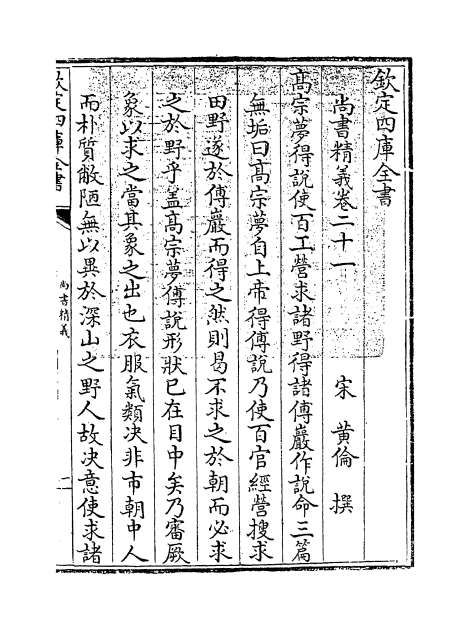 欽定四庫全書
尚書精義卷二十一
宋 黃倫 撰
高宗夢得說使百工營求諸野得諸傅巖作說命三篇
無垢曰高宗夢自上帝得傅說乃使百官經營搜求
田野遂於傅巖而得之然則曷不求之於朝而必求
之於野乎盖高宗夢傅說形狀已在目中矣乃審厥
象以求之當其象之出也衣服氣類決非市朝中人
而朴質敝陋無以異於深山之野人故決意使求諸
欽定四庫全書
尚書精義